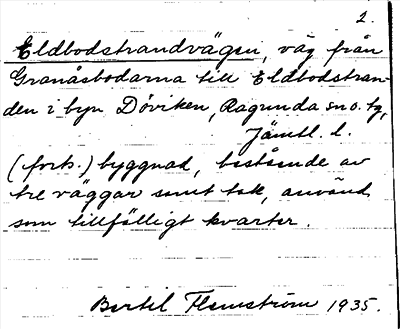 2.
Eldbodstrandvägen, väg från
Granåsbodarna till Eldbodstran-
den i byn Döviken, Ragunda sn o. tg,
Jämtl. l.
(förk.) byggnad, bestående av
tre väggar samt tak, använd
som tillfälligt kvarter.
Bertil Flemström 1935.